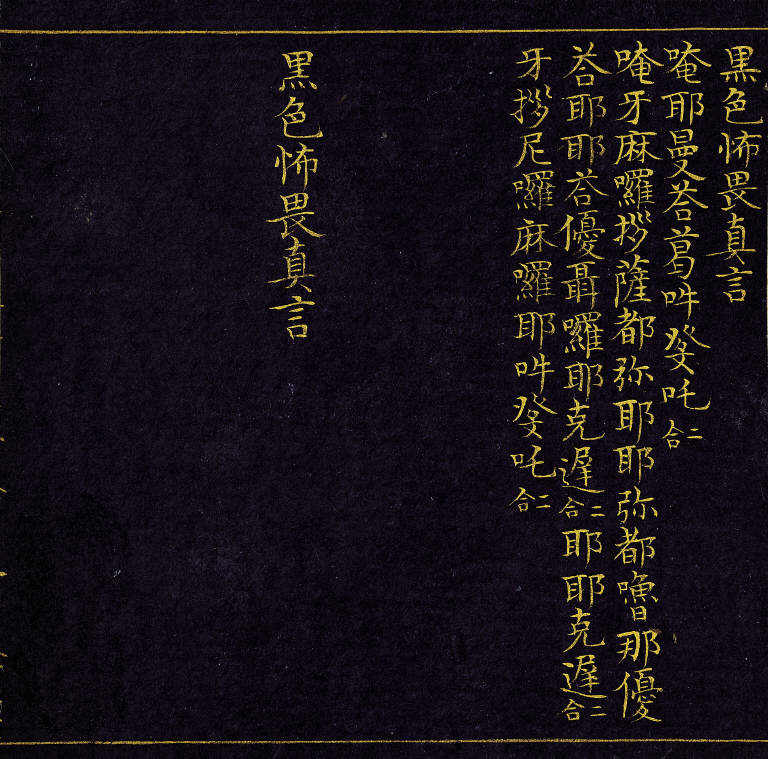 黒色怖畏真言
唵耶曼荅葛吽癹吒二合
唵牙麻囉拶薩都弥耶耶弥都嚕那優
荅耶耶荅優聶囉耶克遅二合耶耶克遅二合
牙拶尼囉麻囉耶吽癹吒二合
黒色怖畏真言